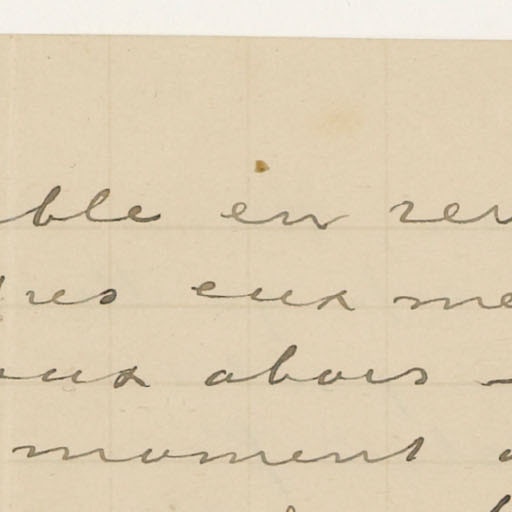 ble en
res eux me
aux abois -
moment